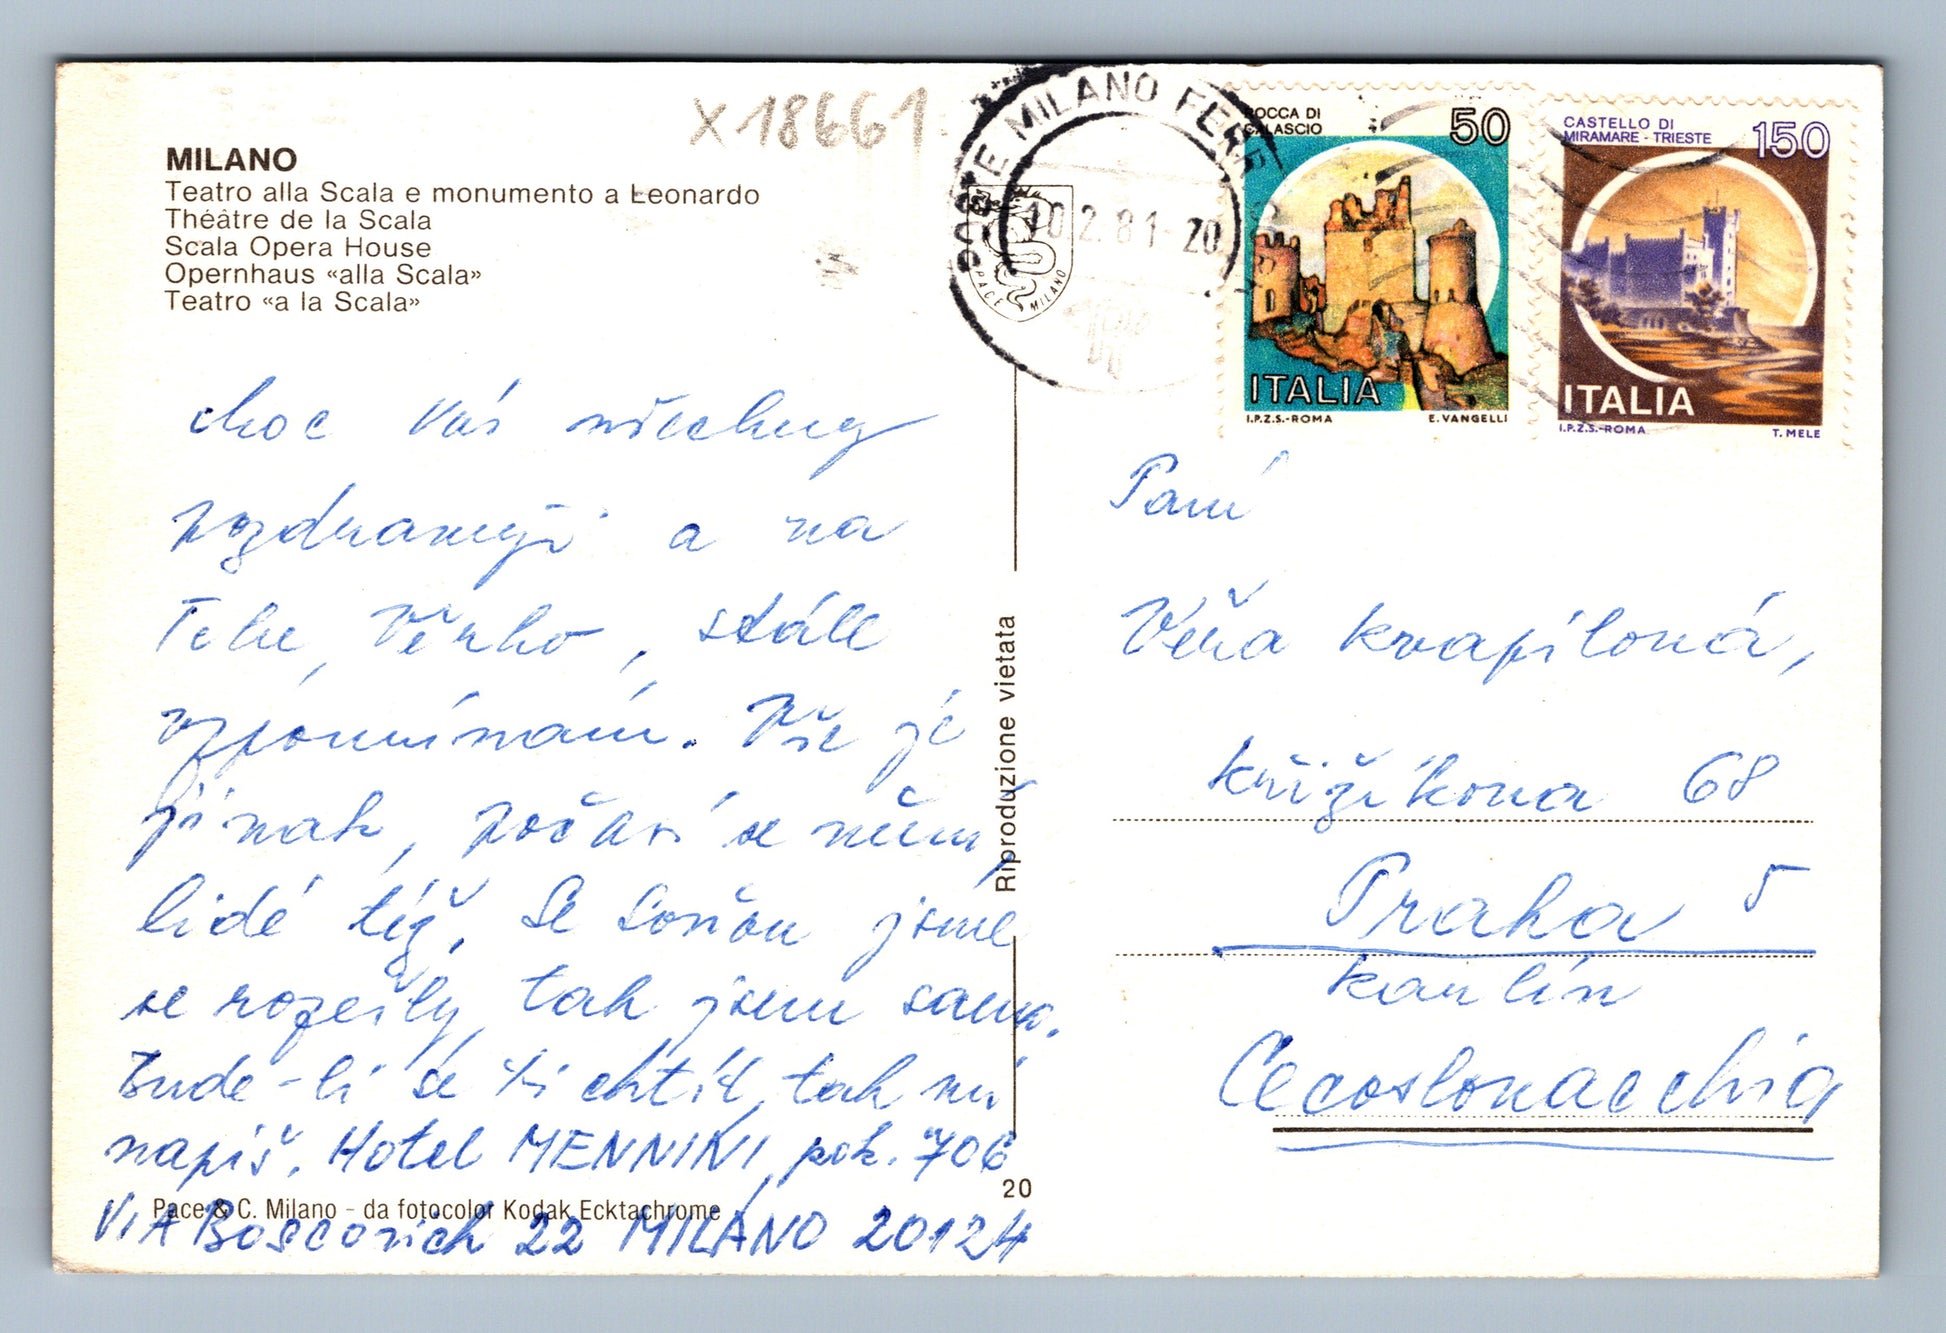 x 18661
MILANO
Teatro alla Scala e monumento a Leonardo
Théâtre de la Scala
Scala Opera House
Opernhaus «alla Scala»
Teatro «a la Scala»
POSTE MILANO FER
10.2.81-20
PACE MILANO
ROCCA DI
CALASCIO
50
ITALIA
I.P.Z.S.-ROMA E. VANGELLI
CASTELLO DI
MIRAMARE - TRIESTE
150
ITALIA
I.P.Z.S.-ROMA T. MELE
choc Vás všechny
pozdravuji a na
Tebe, Věrko, stále
vzpomínám. Vše je
jinak, počasí se mění,
lidé též. Se Soňou jsme
se rozešly, tak jsem sama.
Bude-li se ti chtít, tak mi
napiš. Hotel MENNINI, pok. 706
VIA Boscovich 22 MILANO 20124
Pace & C. Milano - da fotocolor Kodak Ecktachrome
20
Riproduzione vietata
Paní
Věra Kvapilová,
Křižíkova 68
Praha 5
Karlín
Cecoslovacchia